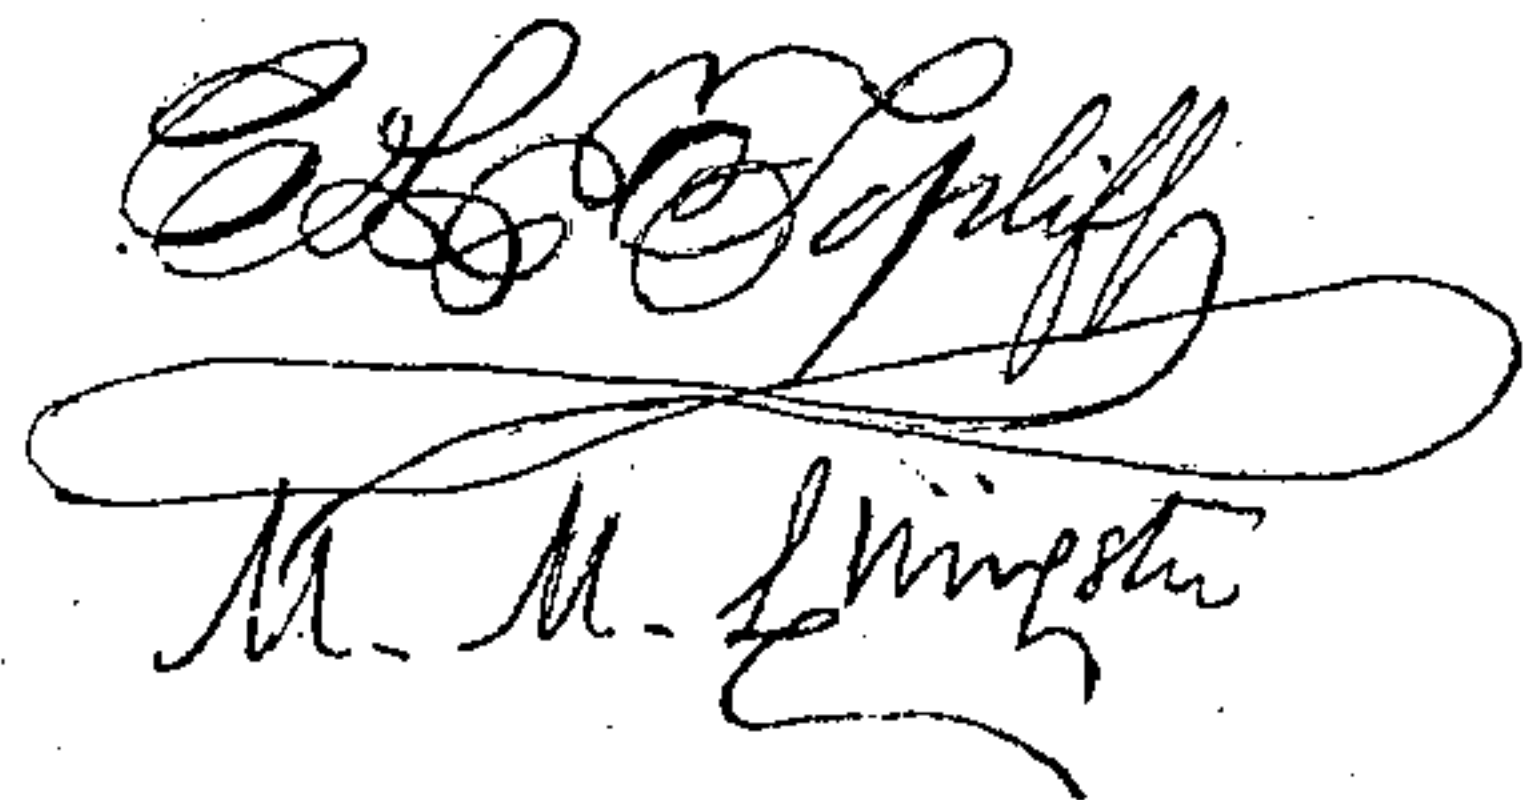 C L Topliff
M. M. Livingston